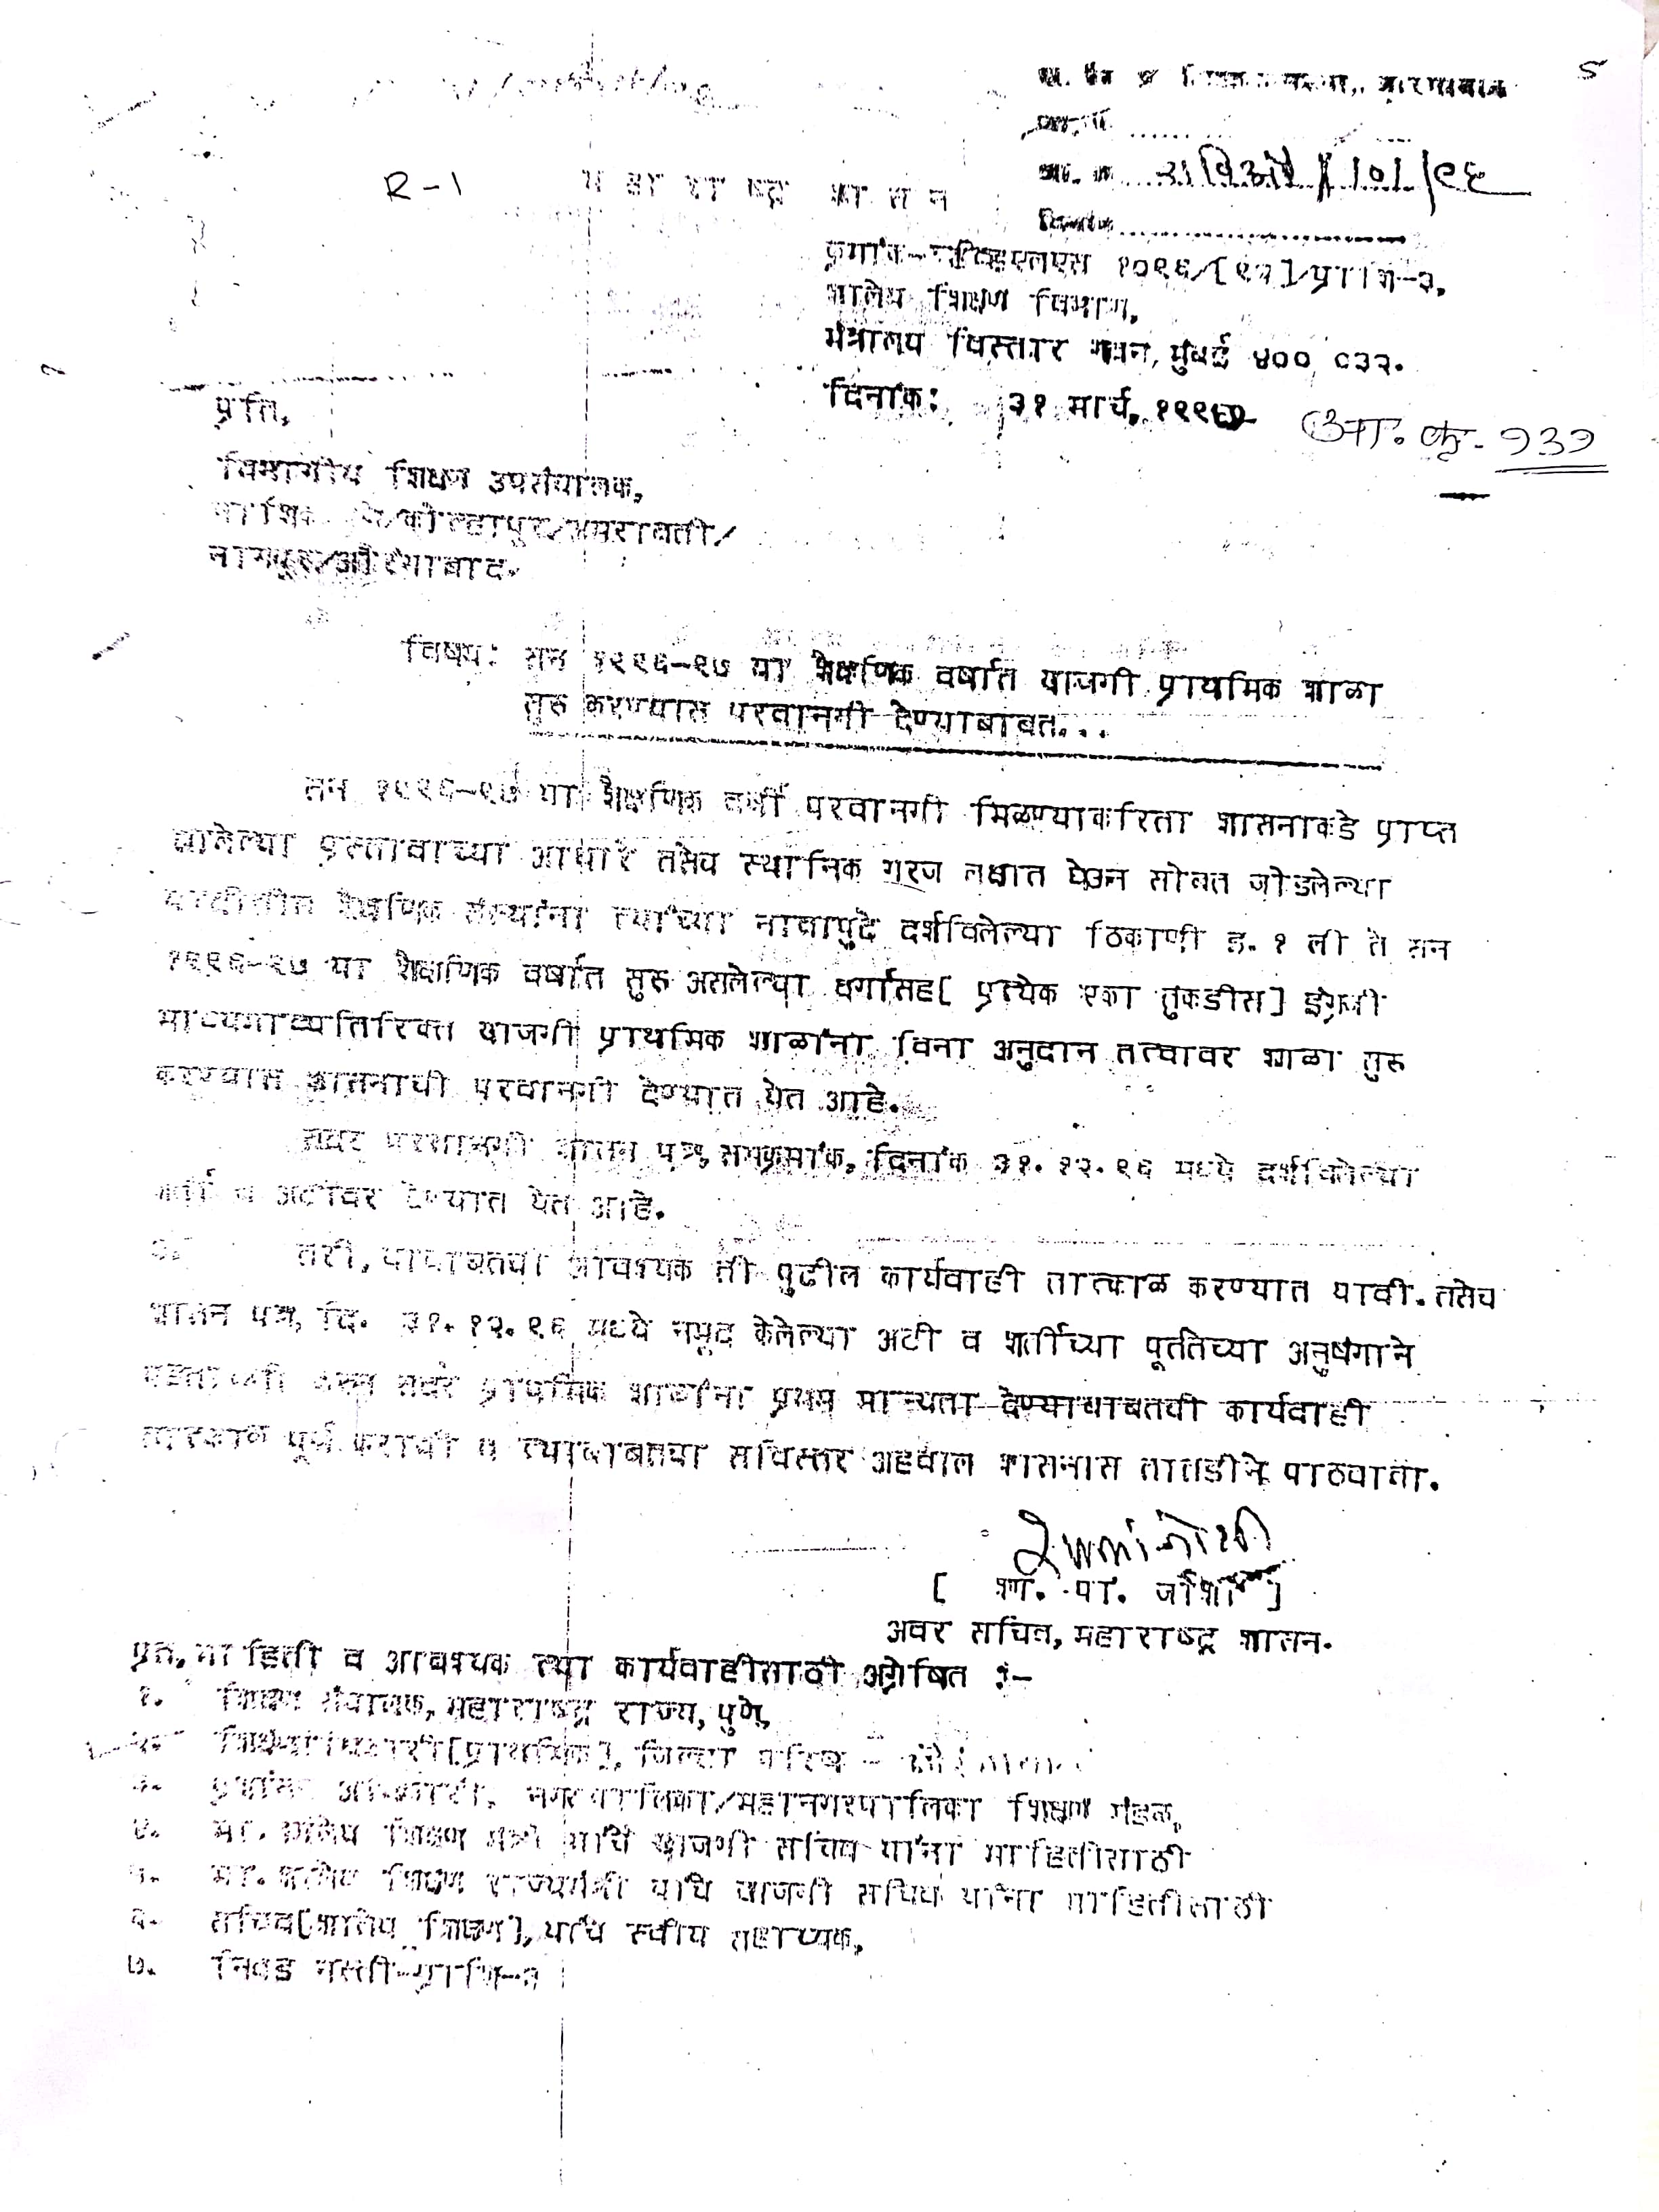 5
R-1
म हा रा ष्ट्र शा स न
शालेय शिक्षण विभाग,
मंत्रालय विस्तार भवन, मुंबई ४०० ०३२.
दिनांक: ३१ मार्च,
आ. क्र. १३१
प्रति,
विभागीय शिक्षण उपसंचालक,
कोल्हापूर/अमरावती/
नागपूर/औरंगाबाद.
विषय: सन १९९६-९७ या शैक्षणिक वर्षात खाजगी प्राथमिक शाळा
सुरु करण्यास परवानगी देण्याबाबत...
सन १९९६-९७ या शैक्षणिक वर्षी परवानगी मिळण्याकरिता शासनाकडे प्राप्त
झालेल्या प्रस्तावाच्या आधारे तसेच स्थानिक गरज लक्षात घेऊन सोबत जोडलेल्या
शैक्षणिक संस्थांना त्यांच्या नावापुढे दर्शविलेल्या ठिकाणी इ. १ ली ते सन
१९९६-९७ या शैक्षणिक वर्षात सुरु असलेल्या वर्गासह[ प्रत्येक एका तुकडीस] इंग्रजी
माध्यमाव्यतिरिक्त खाजगी प्राथमिक शाळांना विना अनुदान तत्वावर शाळा सुरु
करण्यास शासनाची परवानगी देण्यात येत आहे.
सदर परवानगी शासन पत्र, समक्रमांक, दिनांक ३१.१२.९६ मध्ये दर्शविलेल्या
शर्ती व अटीवर देण्यात येत आहे.
तरी, याबाबतची आवश्यक ती पुढील कार्यवाही तात्काळ करण्यात यावी. तसेच
शासन पत्र, दि. ३१.१२.९६ मध्ये नमूद केलेल्या अटी व शर्तीच्या पूर्ततेच्या अनुषंगाने
सदर प्राथमिक शाळांना प्रथम मान्यता देण्याबाबतची कार्यवाही
तात्काळ पूर्ण करावी व त्याबाबतचा सविस्तर अहवाल शासनास तातडीने पाठवावा.
जोशी ]
अवर सचिव, महाराष्ट्र शासन.
प्रत, माहिती व आवश्यक त्या कार्यवाहीसाठी अग्रेषित :-
१. शिक्षण संचालक, महाराष्ट्र राज्य, पुणे,
शिक्षणाधिकारी[प्राथमिक], जिल्हा परिषद -
नगरपालिका/महानगरपालिका शिक्षण मंडळ,
४. मा. शालेय शिक्षण मंत्री यांचे खाजगी सचिव यांना माहितीसाठी
५. मा. शालेय शिक्षण राज्यमंत्री यांचे खाजगी सचिव यांना माहितीसाठी
६. सचिव[शालेय शिक्षण], यांचे स्वीय सहाय्यक,
७. निवड नस्ती-प्राशि-